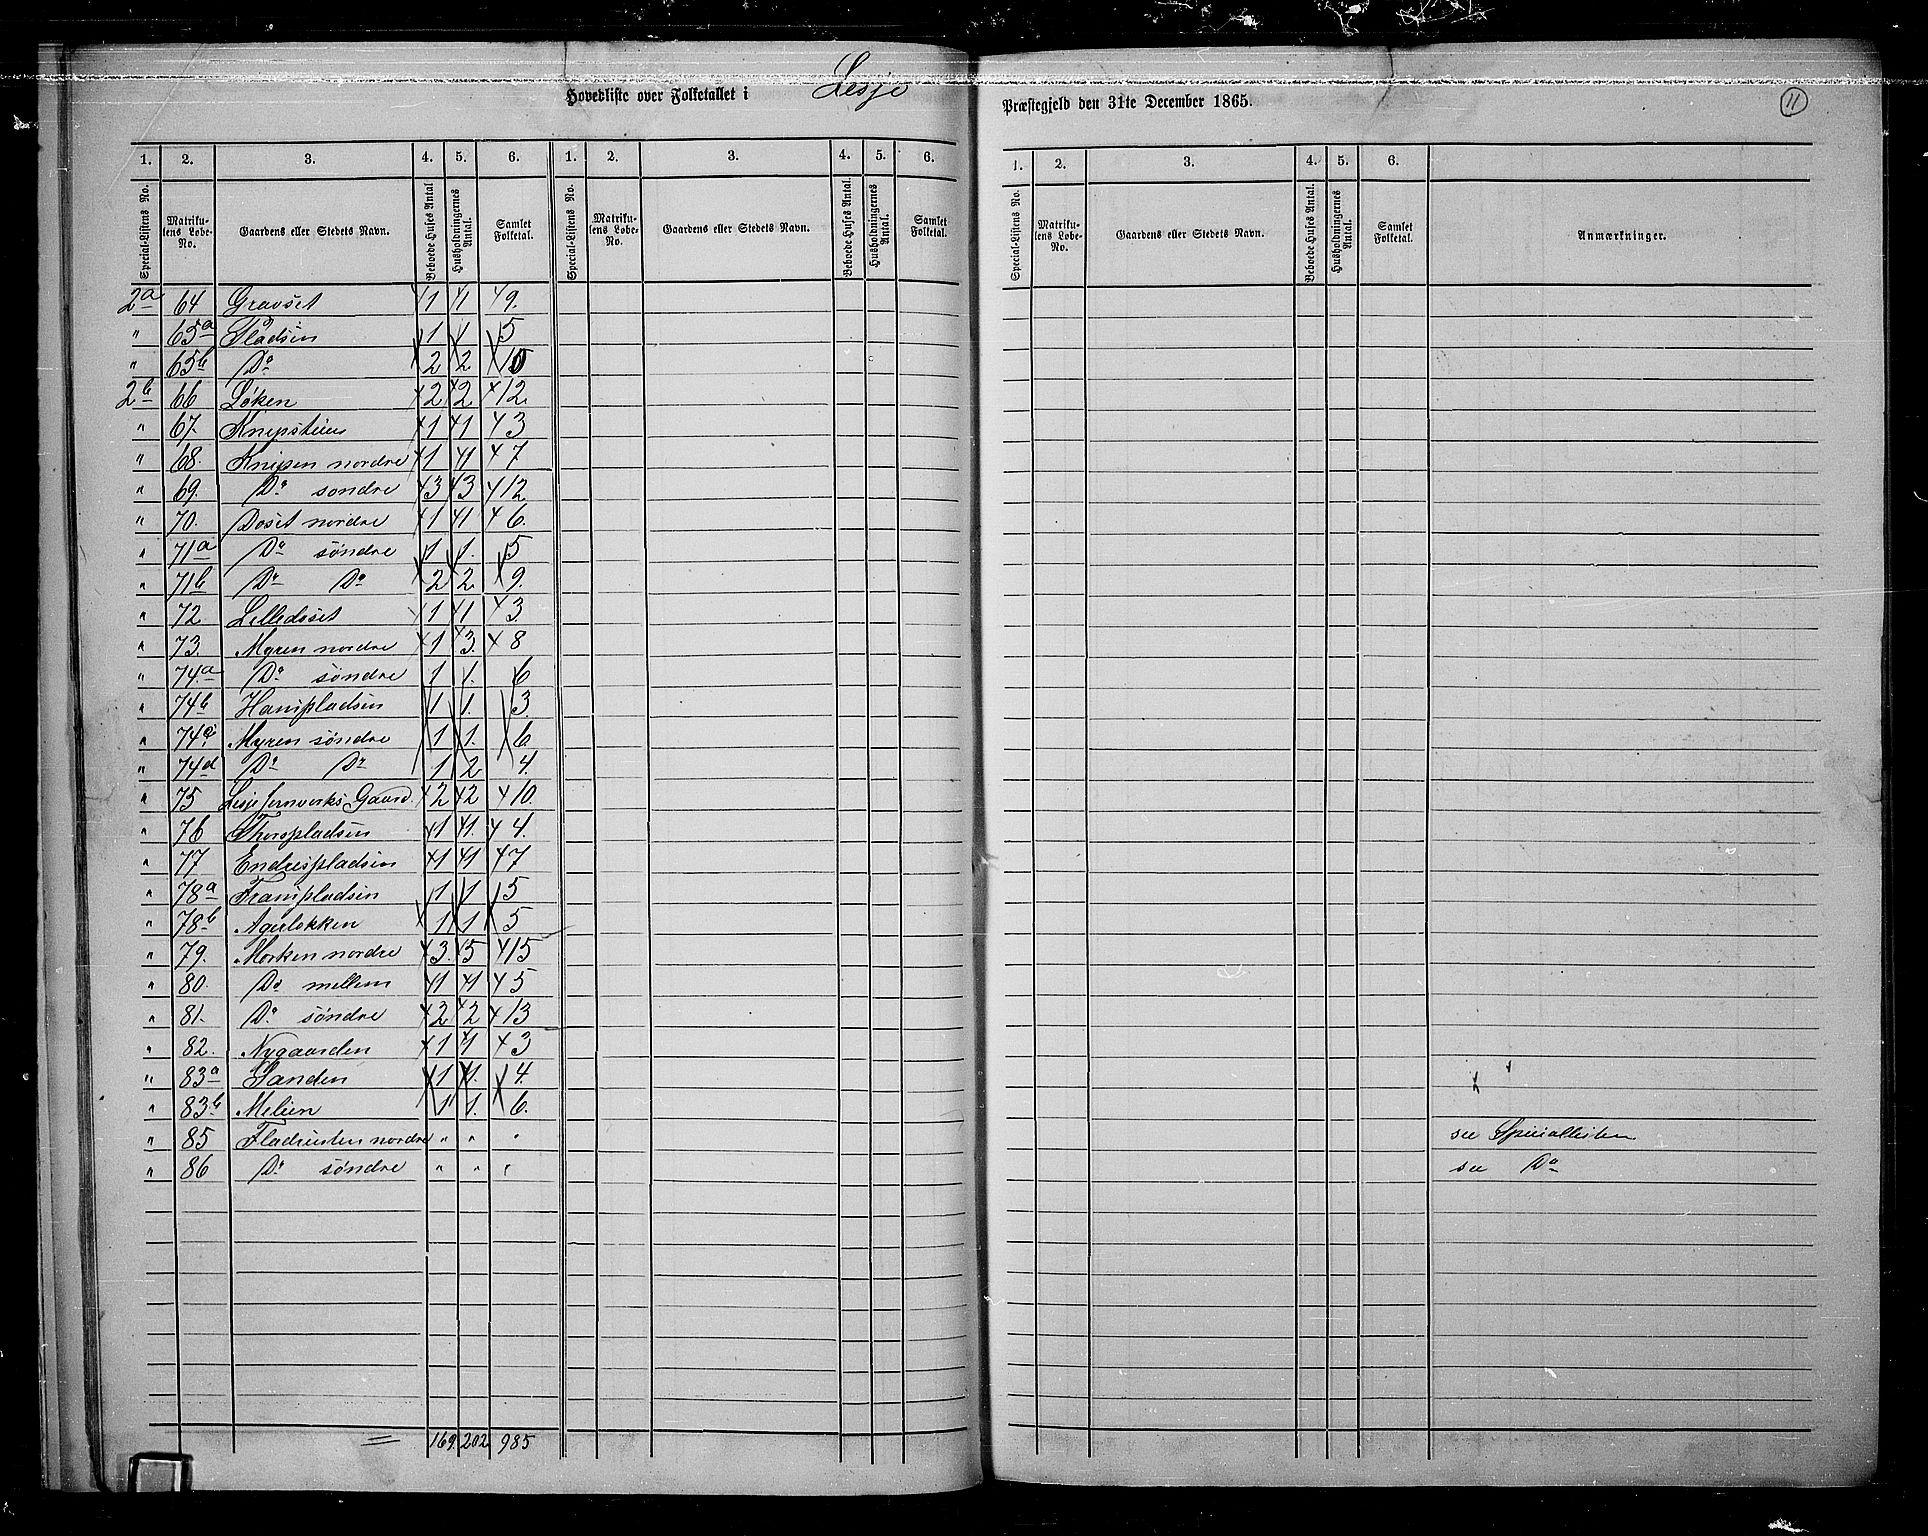 Hovedliste over Folketallet i Lesje Præstegjeld den 31te December 1865.
11
1. 2. 3. 4. 5. 6. 1. 2. 3. 4. 5. 6. 1. 2. 3. 4. 5. 6.
Special-Listens No. Matrikulens Løbe-No. Gaardens eller Stedets Navn. Beboede Huses Antal Husholdningernes Antal. Samlet Folketal. Special-Listens No. Matrikulens Løbe-No. Gaardens eller Stedets Navn. Beboede Huses Antal. Husholdningernes Antal. Samlet Folketal. Special-Listens No. Matrikulens Løbe-No. Gaardens eller Stedets Navn. Beboede Huses Antal. Husholdningernes Antal. Samlet Folketal. Anmærkninger.
2a 64 Gravset 1 1 9.
" 65a Pladsen 1 1. 5
" 65b Do 2 2 10
2b 66 Løken 2 2 12.
" 67. 1 1 3
" 68. Knipen nordre 1 1 7
" 69. Do sondre 3 3 12
" 70. Doset nordre 1 1 6.
" 71a Do søndre 1 1. 5
" 71b Do Do 2 2. 9.
" 72 Lilledoset 1 1 3.
" 73. Myren nordre 1 3. 8
" 74a Do søndre 1 1. 6
" 74b Hanspladsen 1 1. 3.
" 74c Myren søndre 1 1. 6.
" 74d Do Do 1 2 4.
" 75 Lesje Jernverks Gaard 2 2 10.
" 76 Thorspladsen 1 1. 4.
" 77 Endrespladsen 1 1 7
" 78a Frampladsen 1 1 5
" 78b Agerløkken 1 1 5
" 79. Morken nordre 3. 5 15
" 80. Do mellem 1 1 5
" 81. Do søndre 2 2 13
" 82. Nygaarden 1 1 3
" 83a Sanden 1 1. 4.
" 83b Melien 1 1. 6.
" 85 nordre " " " see Speciallisten
" 86 Do søndre " " " see Do
169. 202 985